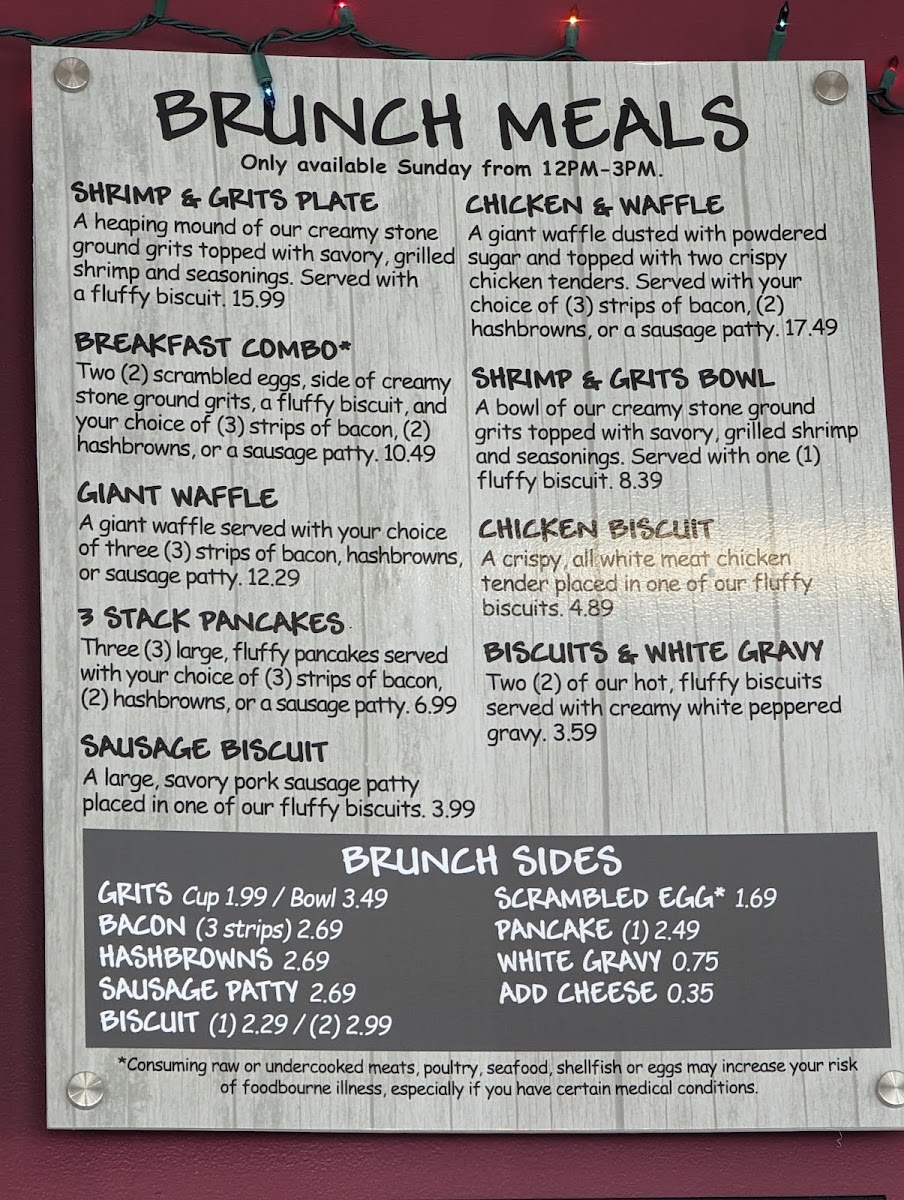 BRUNCH MEALS
Only available Sunday from 12PM-3PM.
SHRIMP & GRITS PLATE
A heaping mound of our creamy stone
ground grits topped with savory, grilled
shrimp and seasonings. Served with
a fluffy biscuit. 15.99
BREAKFAST COMBO*
Two (2) scrambled eggs, side of creamy
stone ground grits, a fluffy biscuit, and
your choice of (3) strips of bacon, (2)
hashbrowns, or a sausage patty. 10.49
GIANT WAFFLE
A giant waffle served with your choice
of three (3) strips of bacon, hashbrowns,
or sausage patty. 12.29
3 STACK PANCAKES
Three (3) large, fluffy pancakes served
with your choice of (3) strips of bacon,
(2) hashbrowns, or a sausage patty. 6.99
SAUSAGE BISCUIT
A large, savory pork sausage patty
placed in one of our fluffy biscuits. 3.99
CHICKEN & WAFFLE
A giant waffle dusted with powdered
sugar and topped with two crispy
chicken tenders. Served with your
choice of (3) strips of bacon, (2)
hashbrowns, or a sausage patty. 17.49
SHRIMP & GRITS BOWL
A bowl of our creamy stone ground
grits topped with savory, grilled shrimp
and seasonings. Served with one (1)
fluffy biscuit. 8.39
CHICKEN BISCUIT
A crispy, all white meat chicken
tender placed in one of our fluffy
biscuits. 4.89
BISCUITS & WHITE GRAVY
Two (2) of our hot, fluffy biscuits
served with creamy white peppered
gravy. 3.59
BRUNCH SIDES
GRITS Cup 1.99 / Bowl 3.49
BACON (3 strips) 2.69
HASHBROWNS 2.69
SAUSAGE PATTY 2.69
BISCUIT (1) 2.29 / (2) 2.99
SCRAMBLED EGG* 1.69
PANCAKE (1) 2.49
WHITE GRAVY 0.75
ADD CHEESE 0.35
*Consuming raw or undercooked meats, poultry, seafood, shellfish or eggs may increase your risk
of foodbourne illness, especially if you have certain medical conditions.